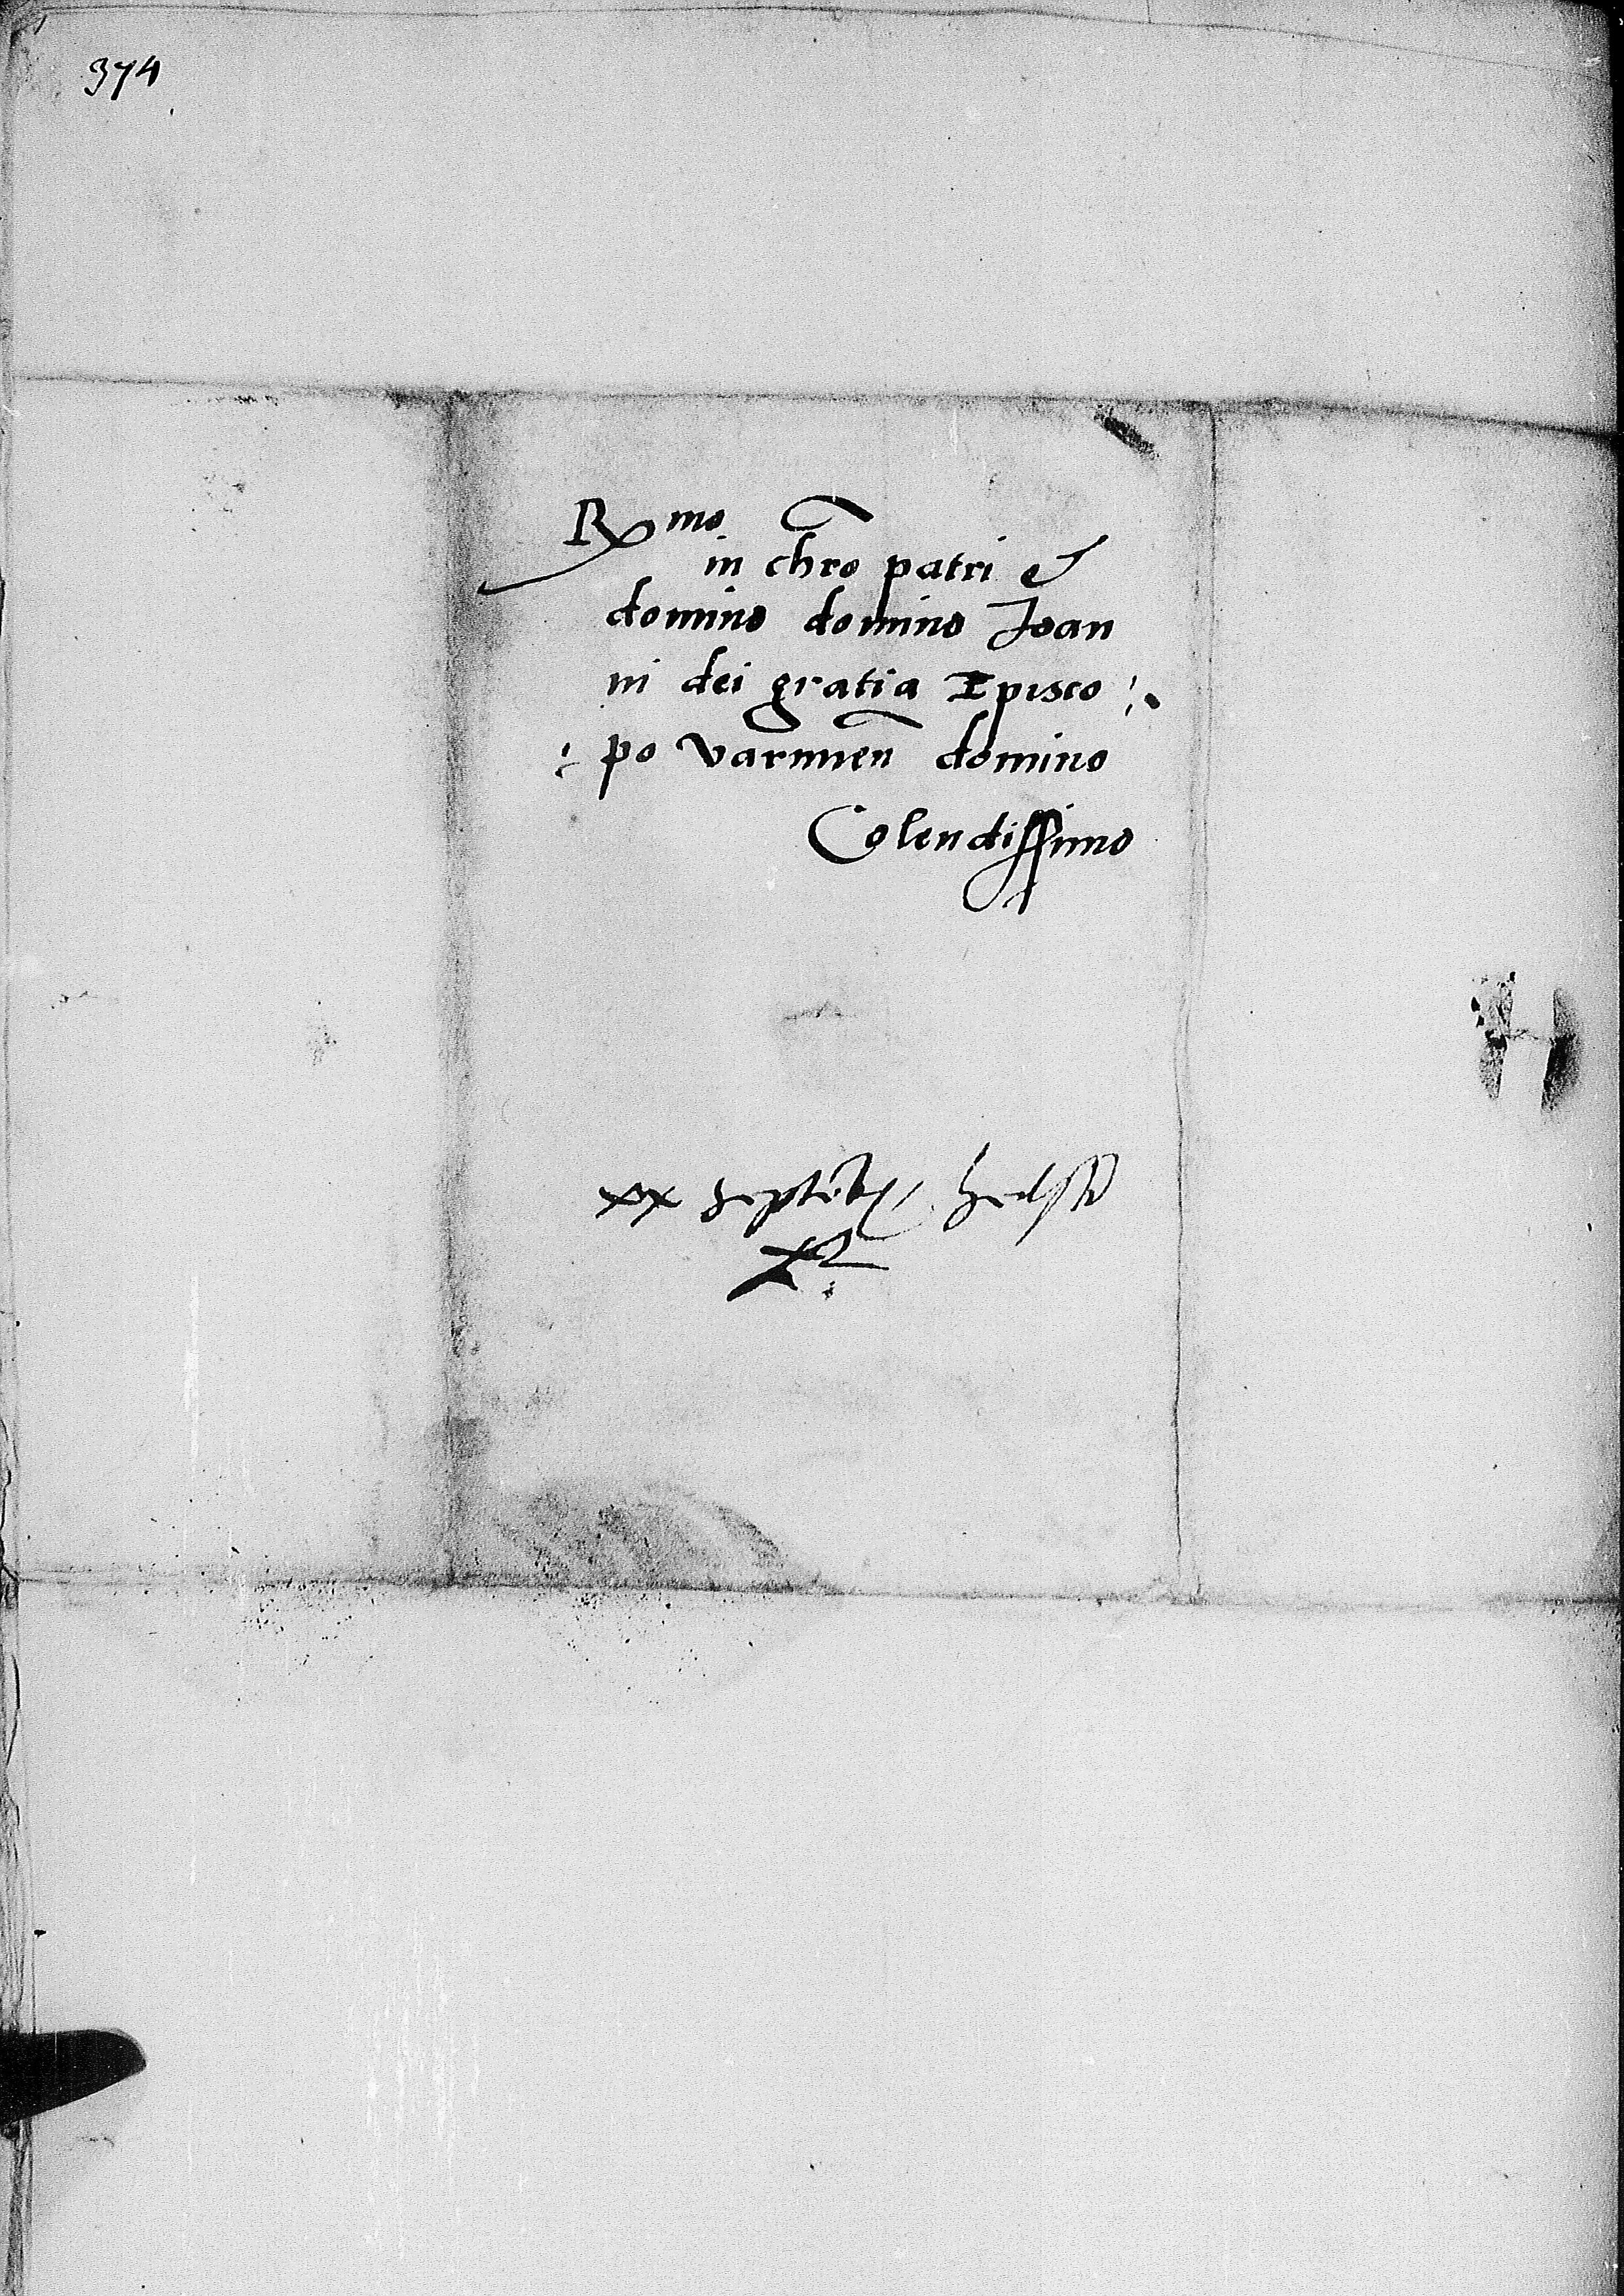 374
Rmo
in chro patri et
domino domino Joan
ni dei gratia Episco
po varmien domino
Colendissimo
xx septēb